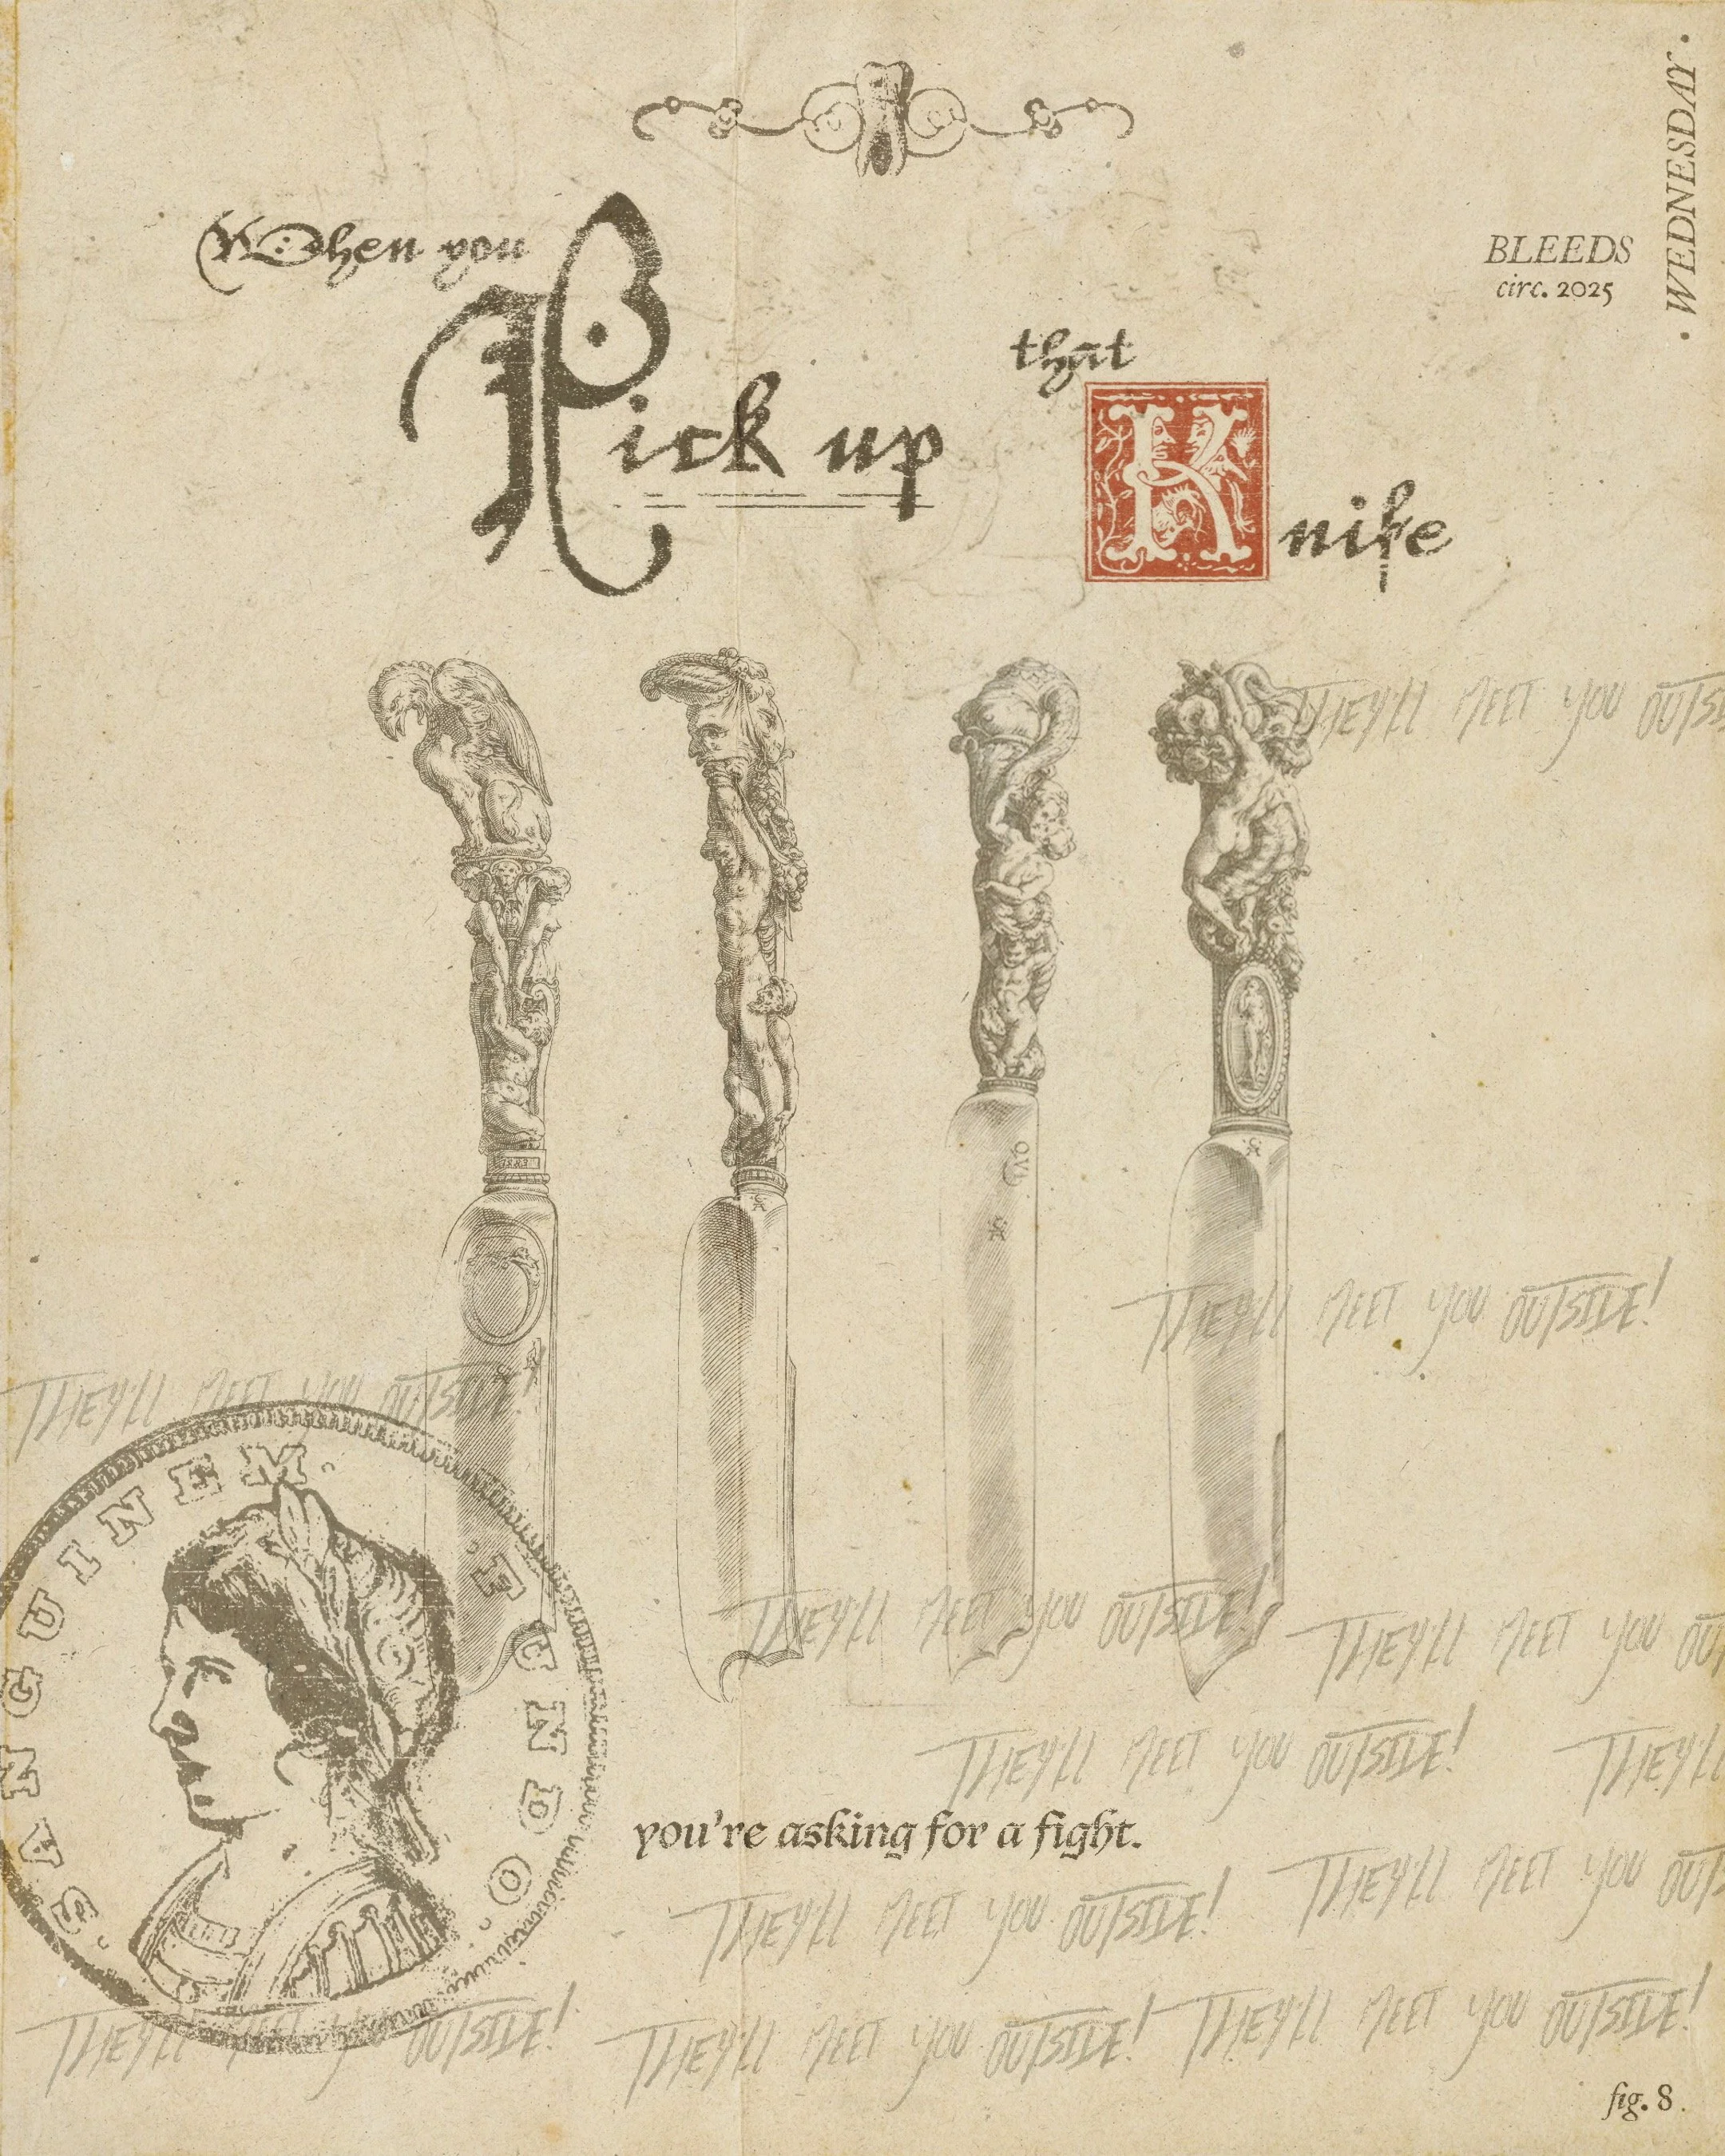 When you
Pick up
that
Knife
BLEEDS
circ. 2025
· WEDNESDAY ·
THEY'LL MEET YOU OUTSI
1583
OVI
THEY'LL MEET YOU OUTSIDE!
THEY'LL MEET YOU OUTSIDE!
· SANGUINEM · FUNDO ·
THEY'LL MEET YOU OUTSIDE!
THEY'LL MEET YOU OU
THEY'LL MEET YOU OUTSIDE!
THEY'LL
you're asking for a fight.
THEY'LL MEET YOU OUTS
THEY'LL MEET YOU OUTSIDE!
THEY'LL MEET YOU OUTSIDE!
THEY'LL MEET YOU OUTSIDE!
THEY'LL MEET YOU OUTSIDE!
fig. 8.